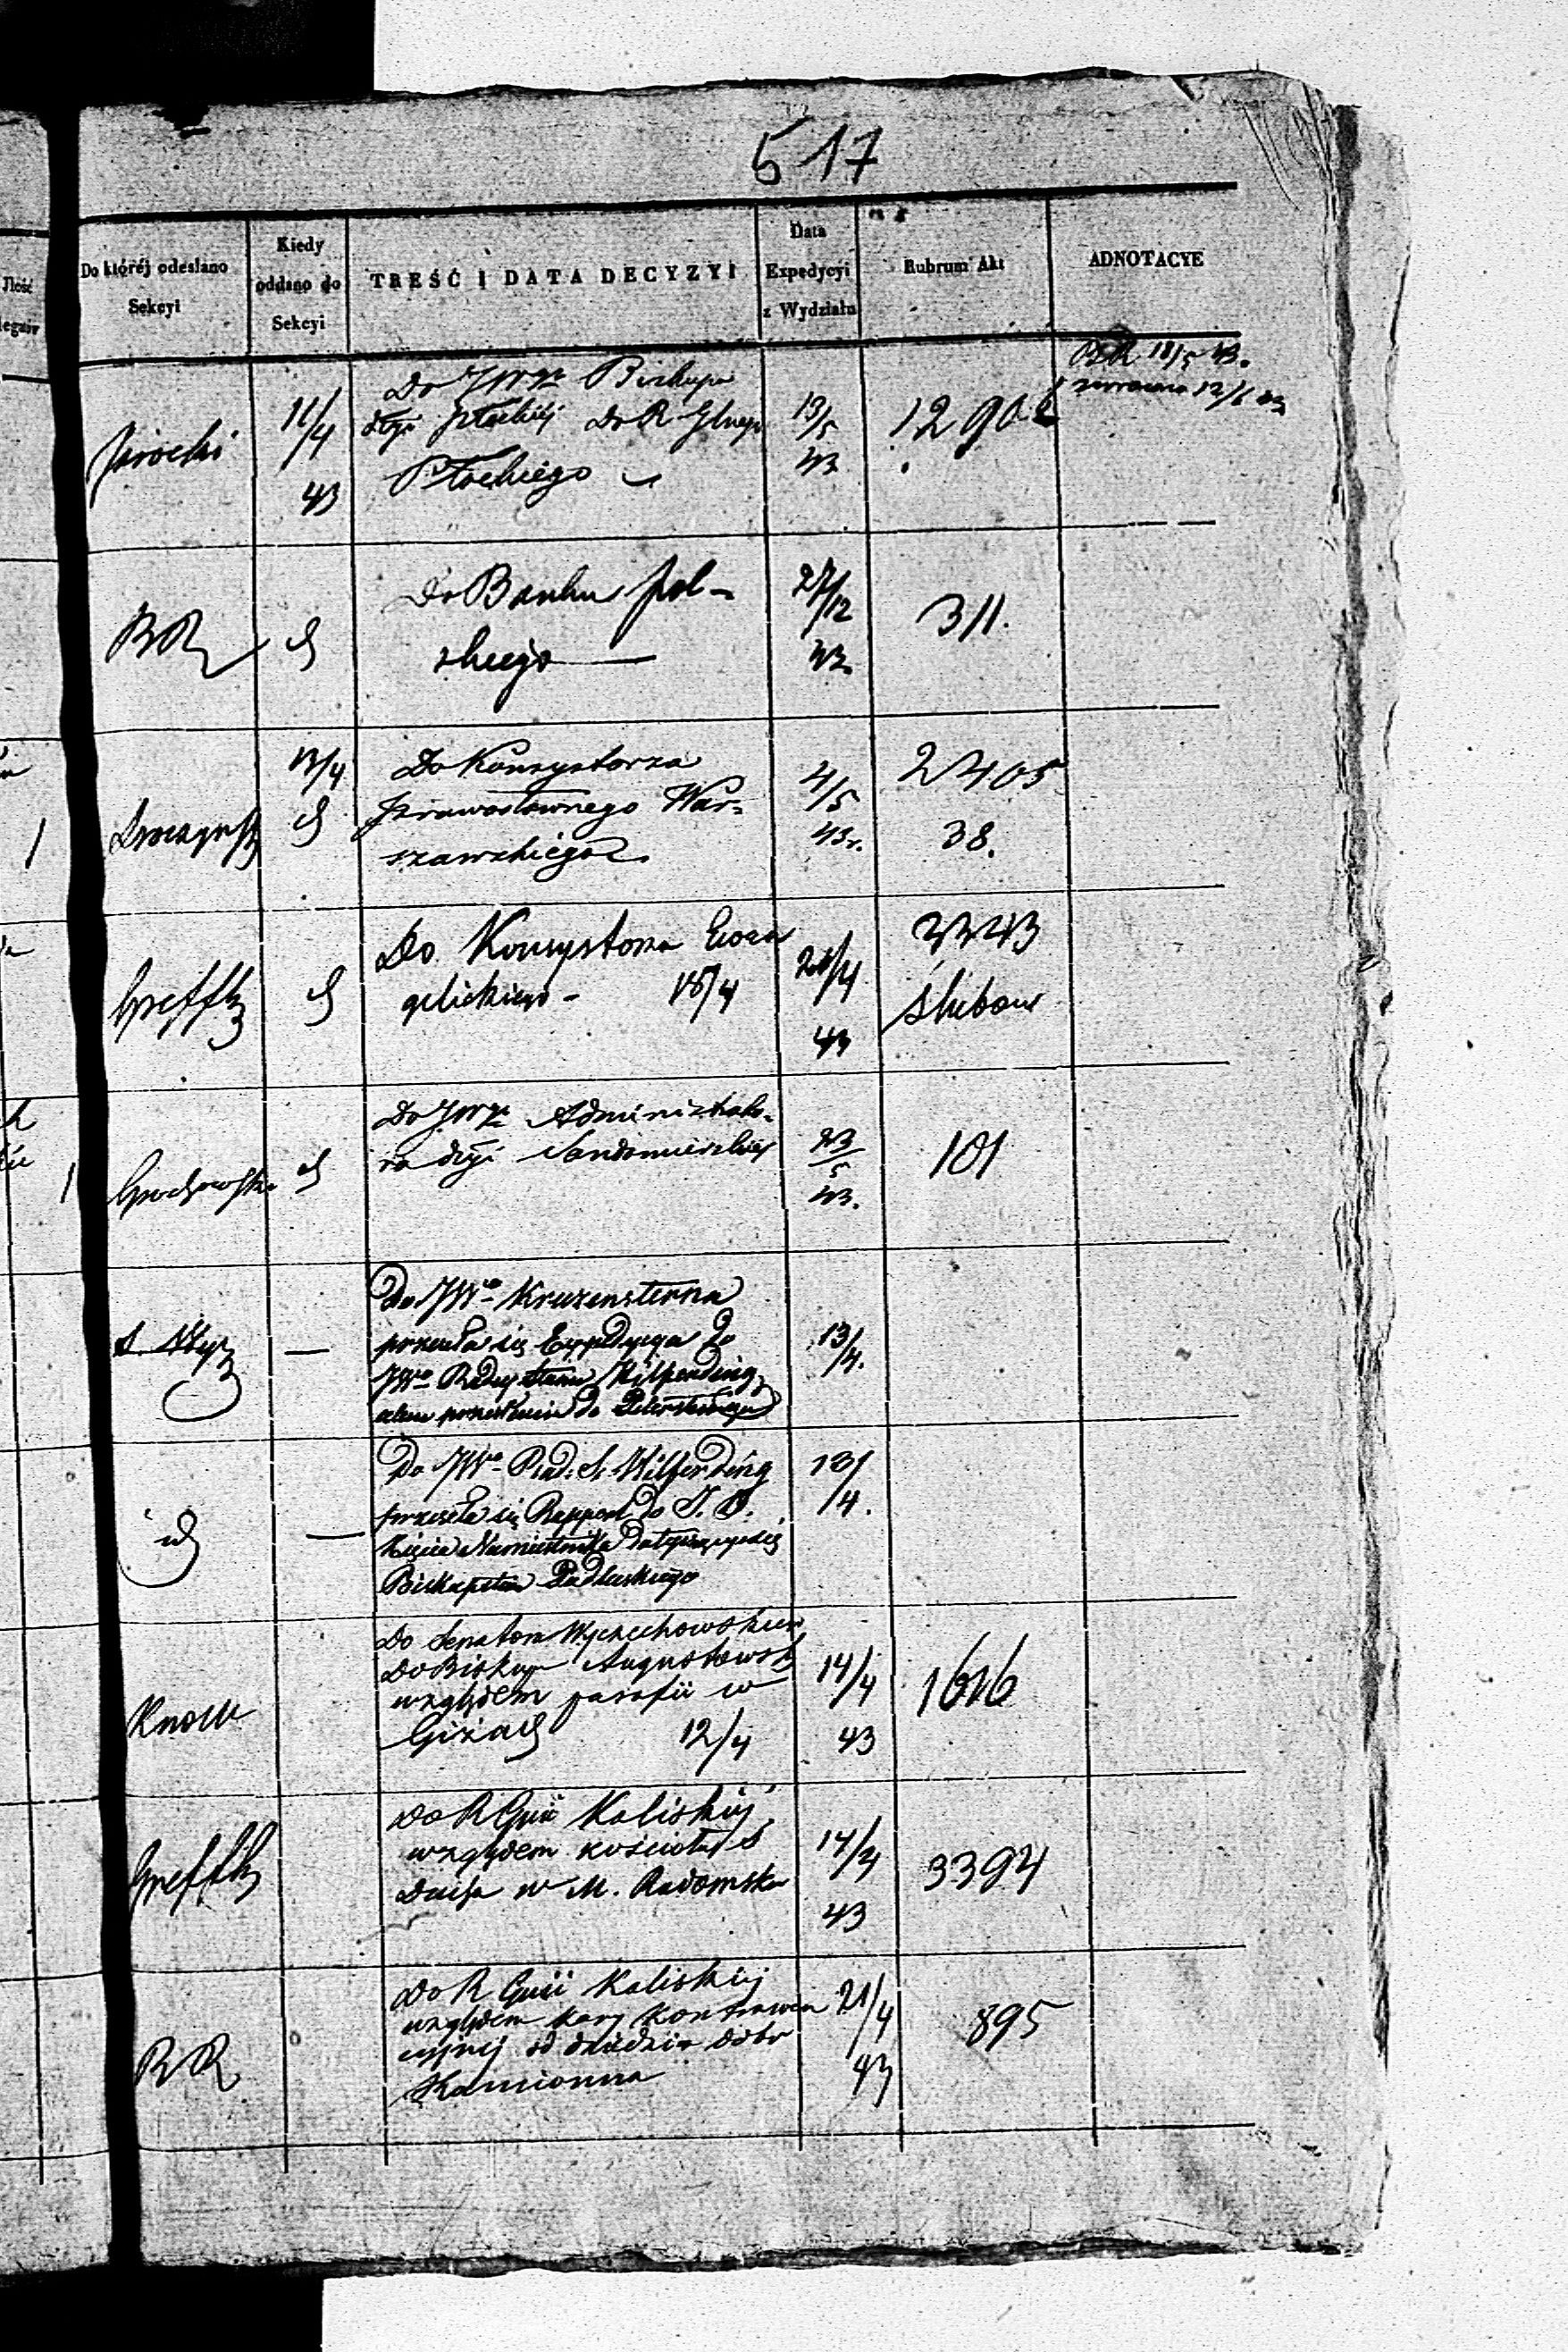 517
Ilość
Do któréj odesłano
Sekcyi
Kiedy
oddano do
Sekcyi
TREŚĆ I DATA DECYZYI
Data
Expedycyi
z Wydziału
Rubrum Akt
ADNOTACYE
Jarocki
11/4
43
Do JWgo Biskupa
Dyi Płockiej Do R Glnego
Płockiego
13/5
43
1290
BR 18/5 43.
zwrócono 12/6 43
BR
d
Do Banku pol-
skiego
27/12
43.
311.
13/4
d
Do Konsystorza
prawosławnego War-
szawskiego
4/5
43r.
2405
38.
Greffk
d
Do Konsystorza Ewan
gelickiego - 18/4
21/4
43
3343
Ślubów
Grochowski
d
Do JWgo Administrato-
ra dyi Sandomierskiej
23/5
43.
101
—
Do JWo Kruzensterna
przesyła się Expedycya do
JWo Radcy Stanu Hilferding
celem przesłania do Petersburga
13/4.
id
—
Do JWo Rad: S. Hilferding
przeseła się Rapport do J. O.
Księcia Namiestnika dotyczący się
Biskupstwa Podlaskiego
13/4.
Knoll
Do Senatora Wyczechowskiego
Do Biskupa Augustowsk
względem parafii w
Giżach 12/4
14/4
43
1616
Greffk
Do R Gnii Kaliskiej
względem kościoła S
Ducha w M. Radomsku
14/4
43
3394
BR
Do R Gnii Kaliskiej
względem kary kontrawen
cyjnej od dziedzica dóbr
Kamionna
21/4
43
895